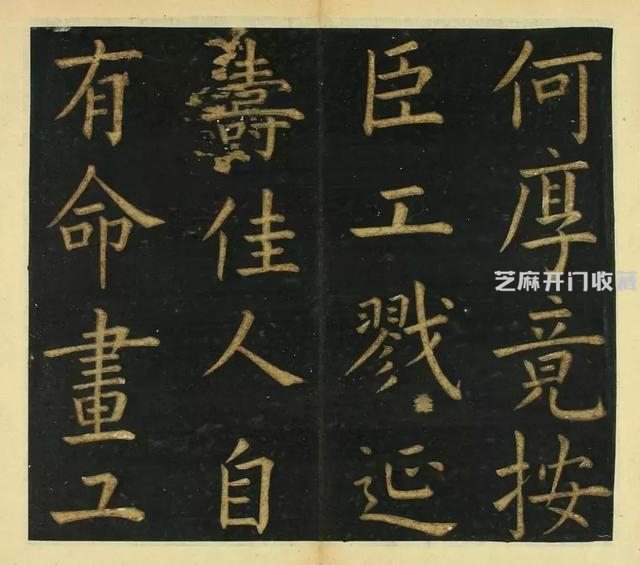 何厚竟按
臣工戮延
壽佳人自
有命畫工
芝麻开门收藏